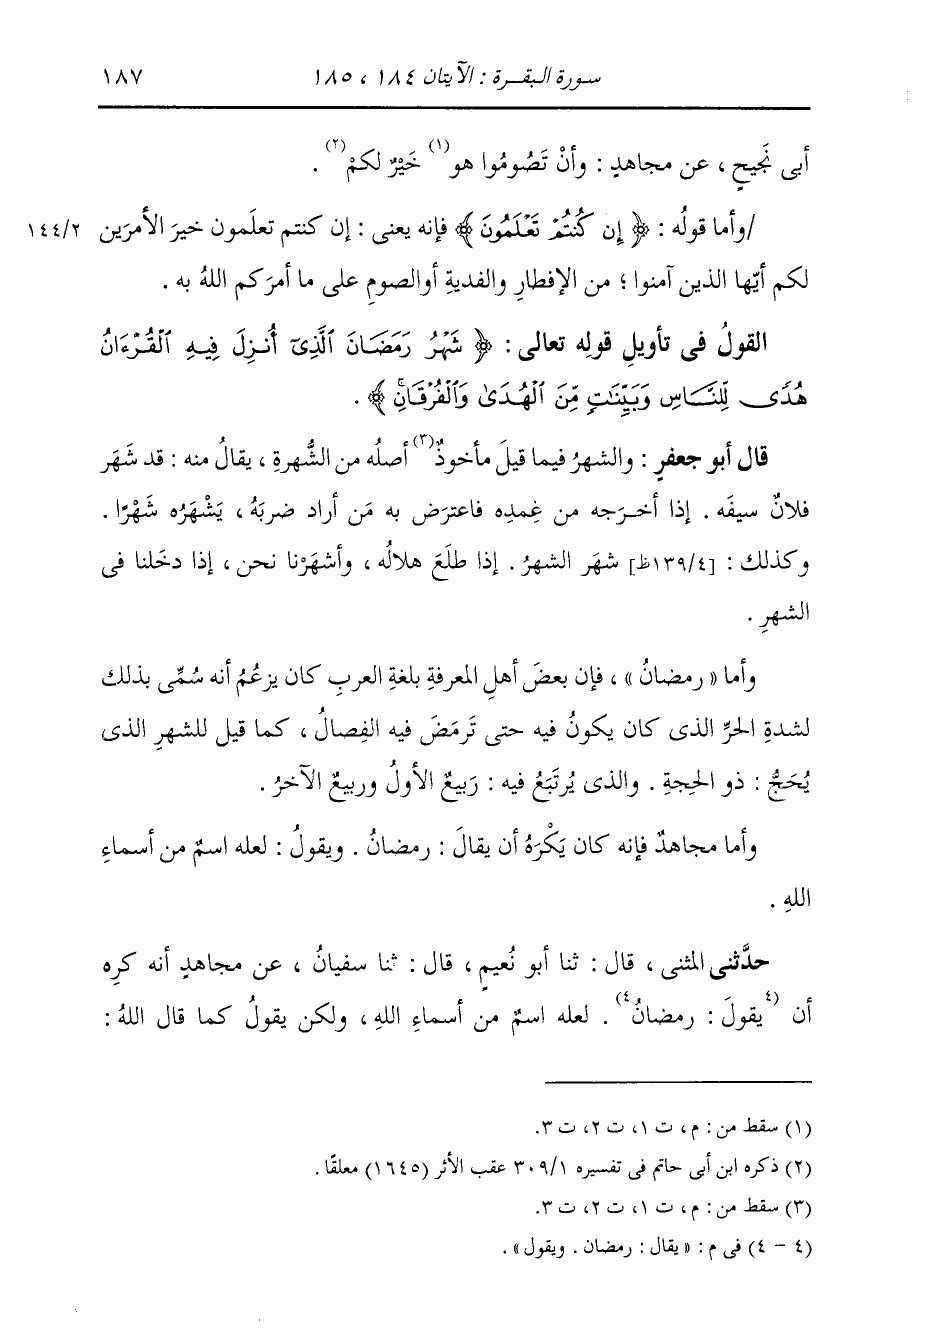 سورة البقرة : الآيتان ١٨٤ ، ١٨٥ ١٨٧
أبى نَجيحٍ ، عن مجاهدٍ : وأنْ تَصُومُوا هو(١) خَيْرٌ لكمْ(٢) .
/وأما قولُه : ﴿ إِن كُنتُمْ تَعْلَمُونَ ﴾ فإنه يعنى : إن كنتم تعلَمون خيرَ الأمرَين ١٤٤/٢
لكم أيّها الذين آمنوا ؛ من الإفطارِ والفديةِ أوالصومِ على ما أمرَكم اللهُ به .
القولُ فى تأويلِ قولِه تعالى : ﴿ شَهْرُ رَمَضَانَ ٱلَّذِىٓ أُنزِلَ فِيهِ ٱلْقُرْءَانُ
هُدًى لِّلنَّاسِ وَبَيِّنَٰتٍ مِّنَ ٱلْهُدَىٰ وَٱلْفُرْقَانِۚ ﴾ .
قال أبو جعفرٍ : والشهرُ فيما قيلَ مأخوذٌ(٣) أصلُه من الشُّهرةِ ، يقالُ منه : قد شَهَر
فلانٌ سيفَه . إذا أخرَجه من غِمدِه فاعترَض به مَن أراد ضربَهُ ، يَشْهَرُه شَهْرًا .
وكذلك : [١٣٩/٤ظ] شهَر الشهرُ . إذا طلَعَ هلالُه ، وأشهَرْنا نحن ، إذا دخَلنا فى
الشهرِ .
وأما « رمضانُ » ، فإن بعضَ أهلِ المعرفةِ بلغةِ العربِ كان يزعُمُ أنه سُمِّى بذلك
لشدةِ الحرِّ الذى كان يكونُ فيه حتى تَرمَضَ فيه الفِصالُ ، كما قيل للشهرِ الذى
يُحَجُّ : ذو الحِجةِ . والذى يُرتَبَعُ فيه : رَبيعٌ الأولُ وربيعٌ الآخرُ .
وأما مجاهدٌ فإنه كان يَكْرَهُ أن يقالَ : رمضانُ . ويقولُ : لعله اسمٌ من أسماءِ
اللهِ .
حدَّثنى المثنى ، قال : ثنا أبو نُعيمٍ ، قال : ثنا سفيانُ ، عن مجاهدٍ أنه كرِه
أن (٤يقولَ : رمضانُ٤) . لعله اسمٌ من أسماءِ اللهِ ، ولكن يقولُ كما قال اللهُ :
(١) سقط من : م ، ت ١، ت ٢، ت ٣.
(٢) ذكره ابن أبى حاتم فى تفسيره ٣٠٩/١ عقب الأثر (١٦٤٥) معلقًا .
(٣) سقط من : م ، ت ١، ت ٢، ت ٣.
(٤ - ٤) فى م : « يقال : رمضان . ويقول » .